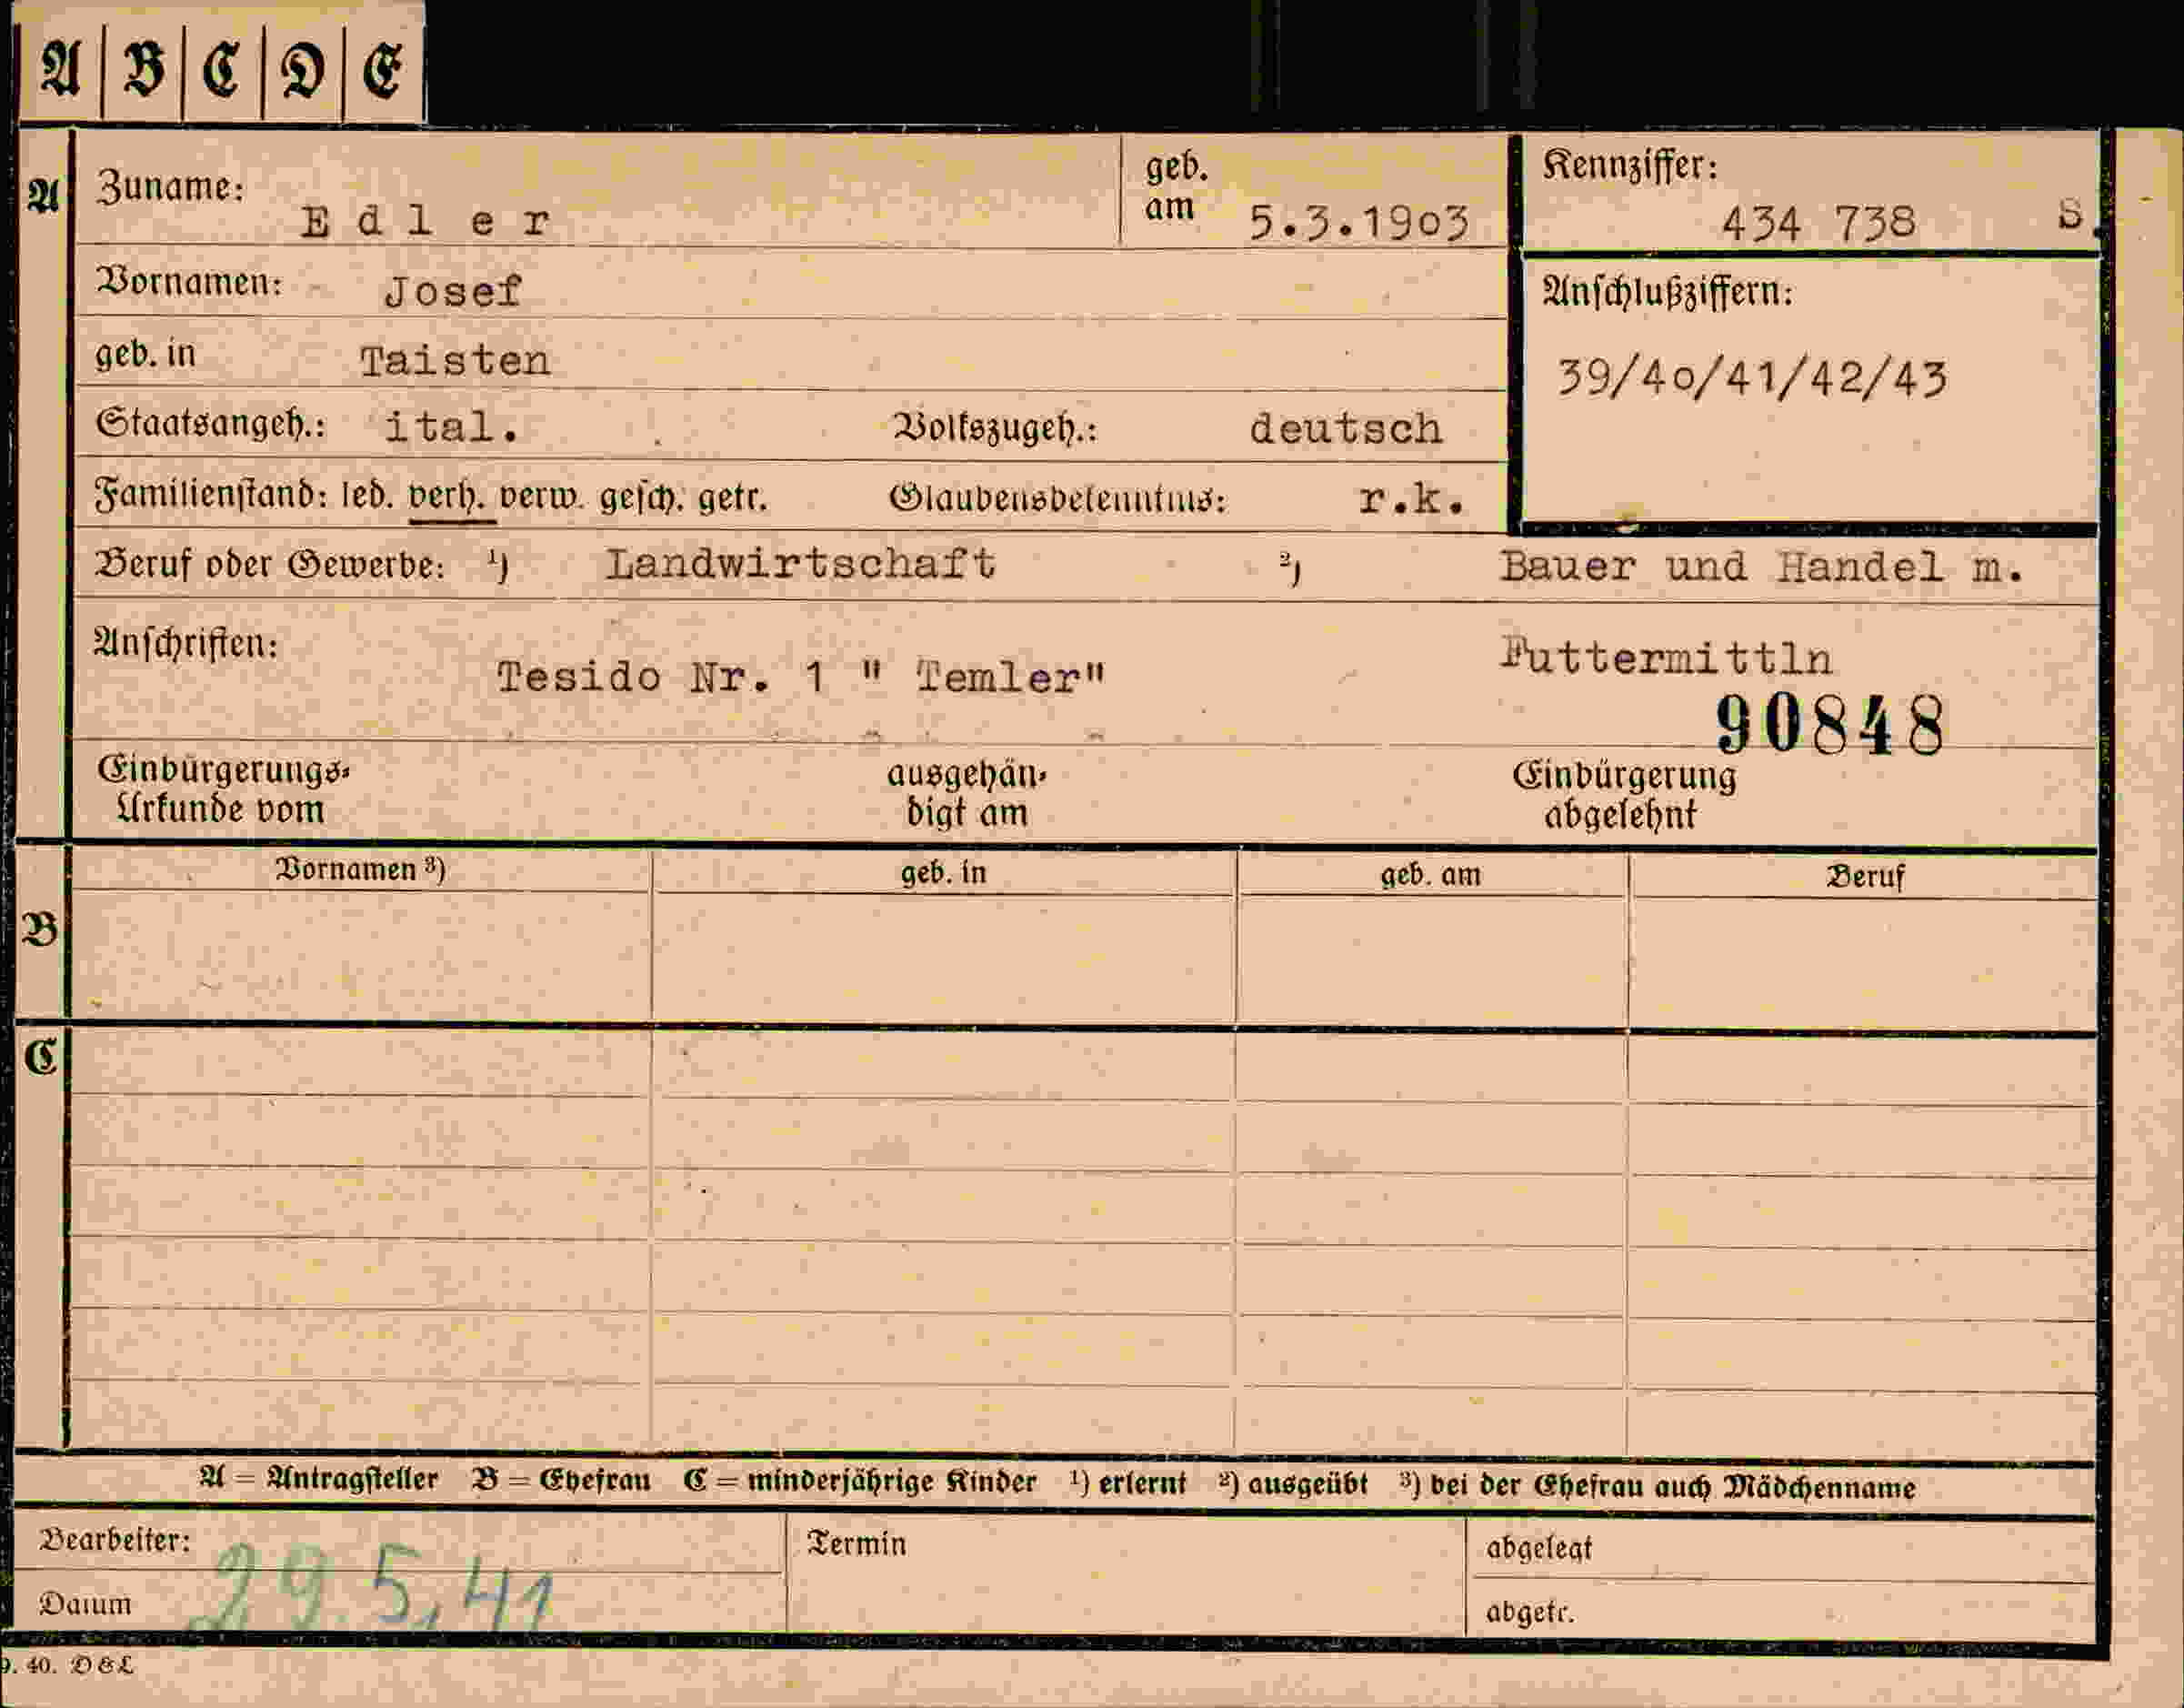 A B C D E
A Zuname: Edler geb. am 5.3.1903 Kennziffer: 434 738 S.
Vornamen: Josef Anschlußziffern:
geb. in Taisten 39/40/41/42/43
Staatsangeh.: ital. Volkszugeh.: deutsch
Familienstand: led. verh. verw. gesch. getr. Glaubensbekenntnis: r.k.
Beruf oder Gewerbe: 1) Landwirtschaft 2) Bauer und Handel m.
Anschriften: Tesido Nr. 1 " Temler" Futtermittln
90848
Einbürgerungs- ausgehän- Einbürgerung
Urkunde vom digt am abgelehnt
Vornamen 3) geb. in geb. am Beruf
B
C
A = Antragsteller B = Ehefrau C = minderjährige Kinder 1) erlernt 2) ausgeübt 3) bei der Ehefrau auch Mädchenname
Bearbeiter: Termin abgelegt
Datum 29.5.41 abgefr.
9. 40. D&L